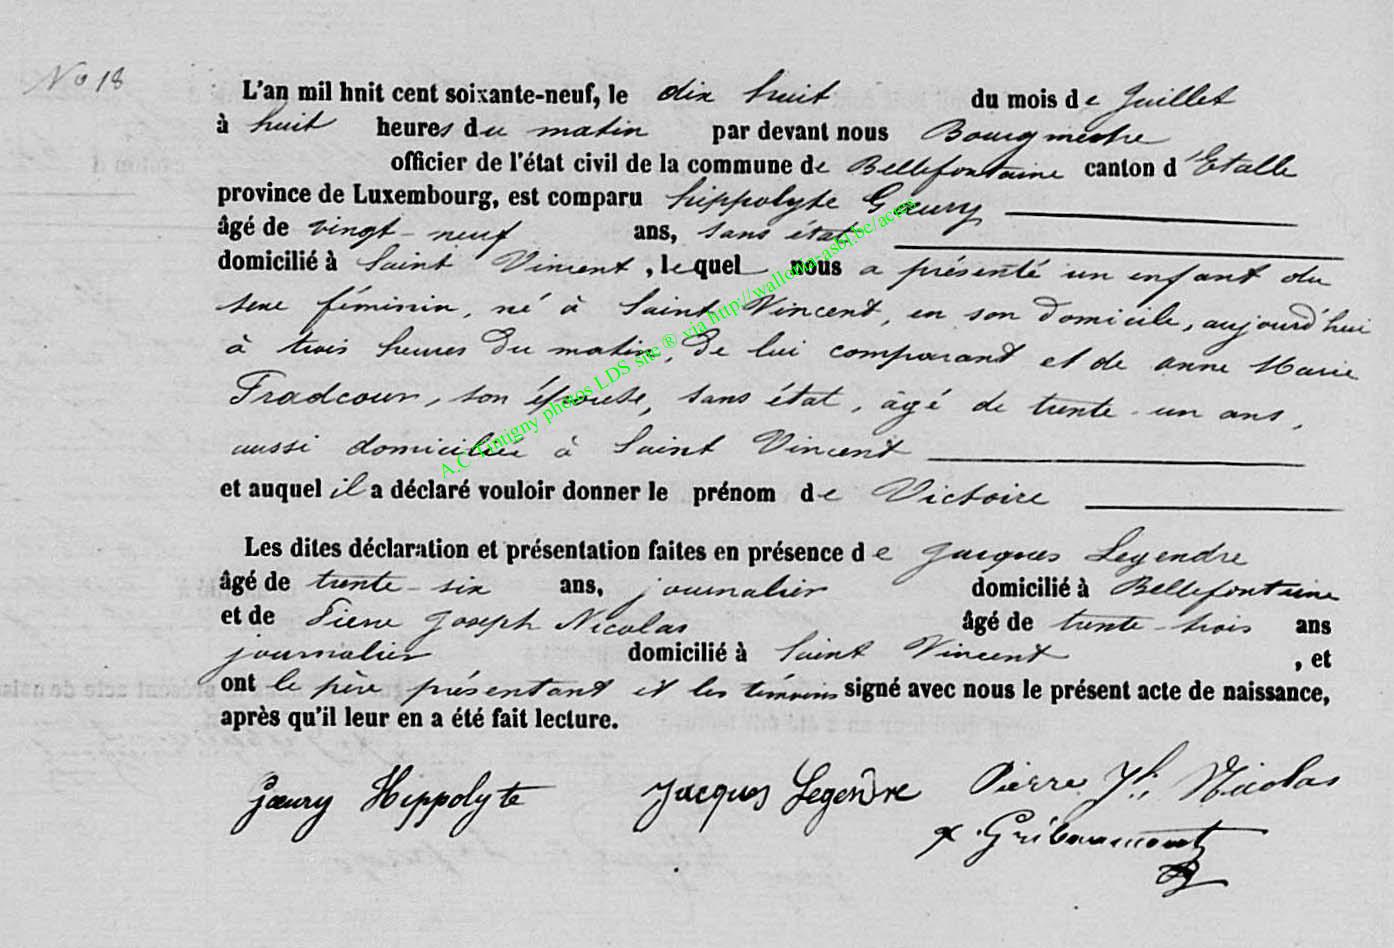 No 18
L'an mil huit cent soixante-neuf, le dix huit du mois de Juillet
à huit heures du matin par devant nous Bourgmestre
officier de l'état civil de la commune de Bellefontaine canton d'Etalle
province de Luxembourg, est comparu hippolyte Goeury
âgé de vingt-neuf ans, sans état
domicilié à Saint Vincent, lequel nous a présenté un enfant du
sexe féminin, né à Saint Vincent, en son Domicile, aujourd'hui
à trois heures Du matin, de lui comparant et de anne Marie
Fradcour, son épouse, sans état, âgé de trente-un ans,
aussi domiciliée à Saint Vincent
et auquel il a déclaré vouloir donner le prénom de Victoire
Les dites déclaration et présentation faites en présence de Jacques Legendre
âgé de trente-six ans, journalier domicilié à Bellefontaine
et de Pierre Joseph Nicolas âgé de trente-trois ans
journalier domicilié à Saint Vincent, et
ont le père présentant et les témoins signé avec nous le présent acte de naissance,
après qu'il leur en a été fait lecture.
Goeury Hippolyte Jacques Legendre Pierre Jh. Nicolas
x. Gribaumont
A.C Tintigny photos LDS site ® via http://wallonia-asbl.be/actes